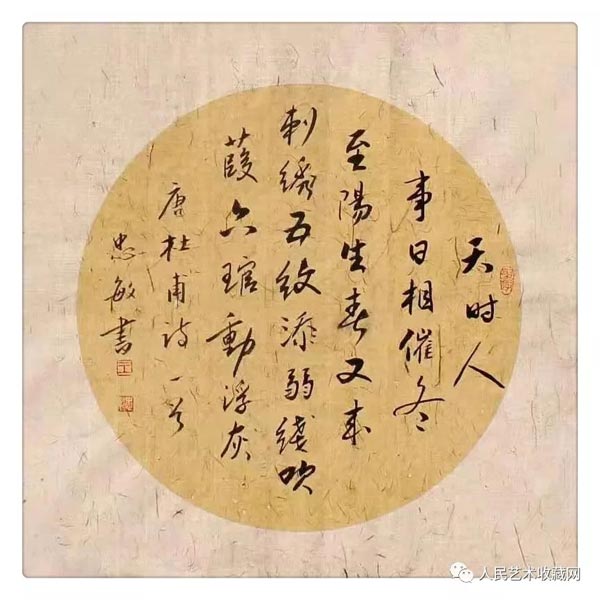 天时人
事日相催冬
至陽生春又来
刺綉五纹添弱线吹
葭六琯動浮灰
唐杜甫诗一首
忠敏書
人民艺术收藏网